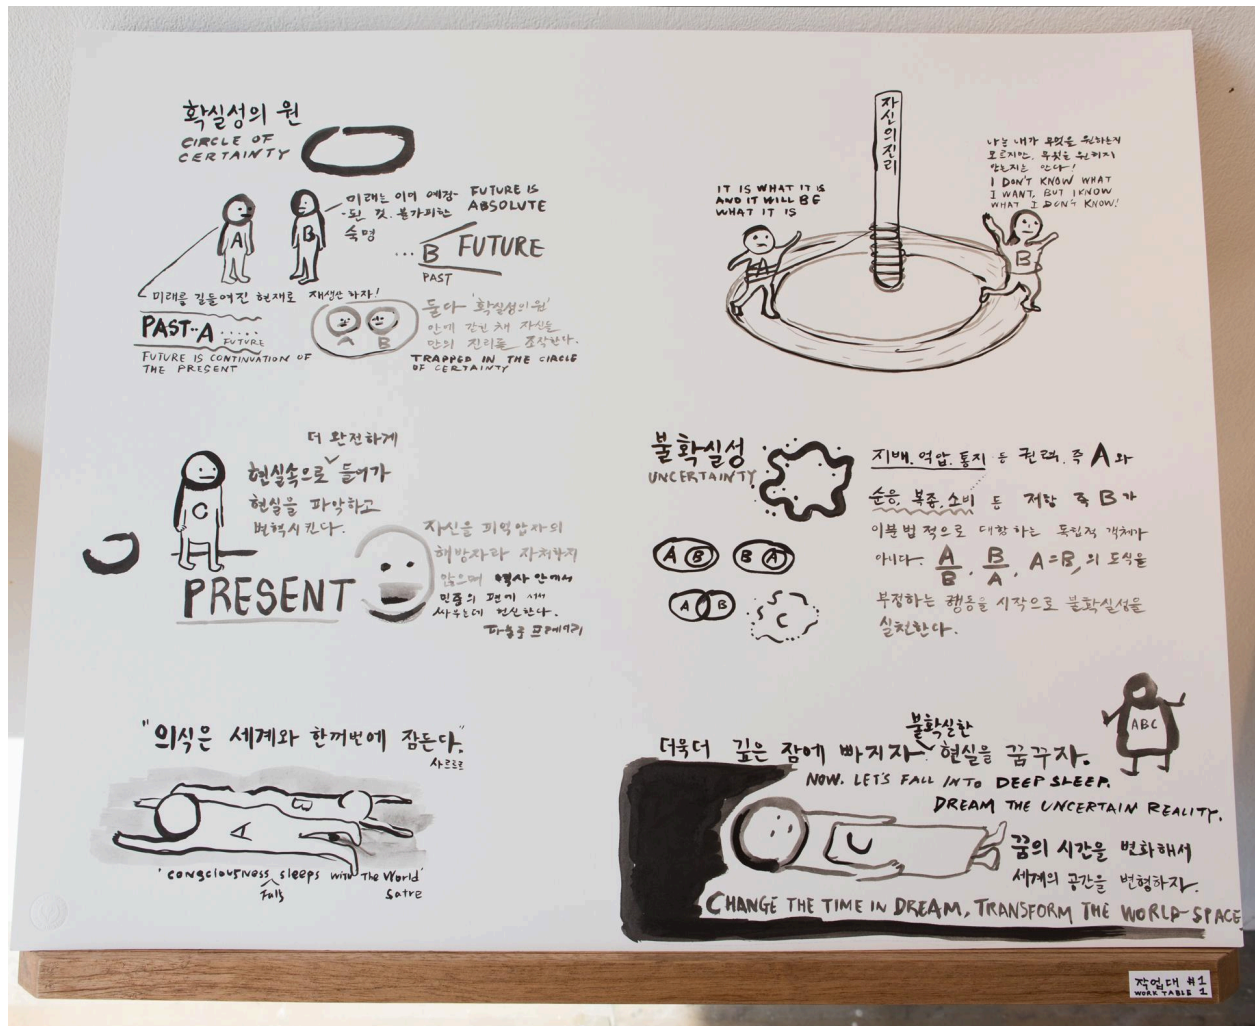 확실성의 원
CIRCLE OF
CERTAINTY
A
B
미래는 이미 예정
된 것. 불가피한
숙명
FUTURE IS
ABSOLUTE
... B FUTURE
PAST
미래를 길들여진 현재로 재생산하자!
PAST-A .....
FUTURE
FUTURE IS CONTINUATION OF
THE PRESENT
A B
둘다 '확실성의 원'
안에 갇힌 채 자신들
만의 진리를 조작한다.
TRAPPED IN THE CIRCLE
OF CERTAINTY
자신의진리
IT IS WHAT IT IS
AND IT WILL BE
WHAT IT IS
A
나는 내가 무엇을 원하는지
모르지만, 무엇을 원하지
않는지는 안다!
I DON'T KNOW WHAT
I WANT, BUT I KNOW
WHAT I DON'T KNOW!
B
더 완전하게
현실속으로 들어가
현실을 파악하고
변혁시킨다.
C
PRESENT
자신을 피억압자의
해방자라 자처하지
않으며 역사 안에서
민중의 편에 서서
싸우는데 헌신한다.
파울로 프레이리
불확실성
UNCERTAINTY
A B
B A
A B
C
지배, 억압, 통치 등 권력, 즉 A와
순응, 복종, 소비 등 저항 즉 B가
이분법적으로 대항하는 독립적 객체가
아니다. A/B, B/A, A=B, 의 도식을
부정하는 행동을 시작으로 불확실성을
실천한다.
"의식은 세계와 한꺼번에 잠든다."
사르트르
A
B
'consciousness sleeps with The World'
falls
Satre
불확실한
더욱더 깊은 잠에 빠지자 현실을 꿈꾸자.
NOW. LET'S FALL INTO DEEP SLEEP.
DREAM THE UNCERTAIN REALITY.
ABC
C
꿈의 시간을 변화해서
세계의 공간을 변형하자.
CHANGE THE TIME IN DREAM, TRANSFORM THE WORLD-SPACE
작업대 #1
WORK TABLE 1